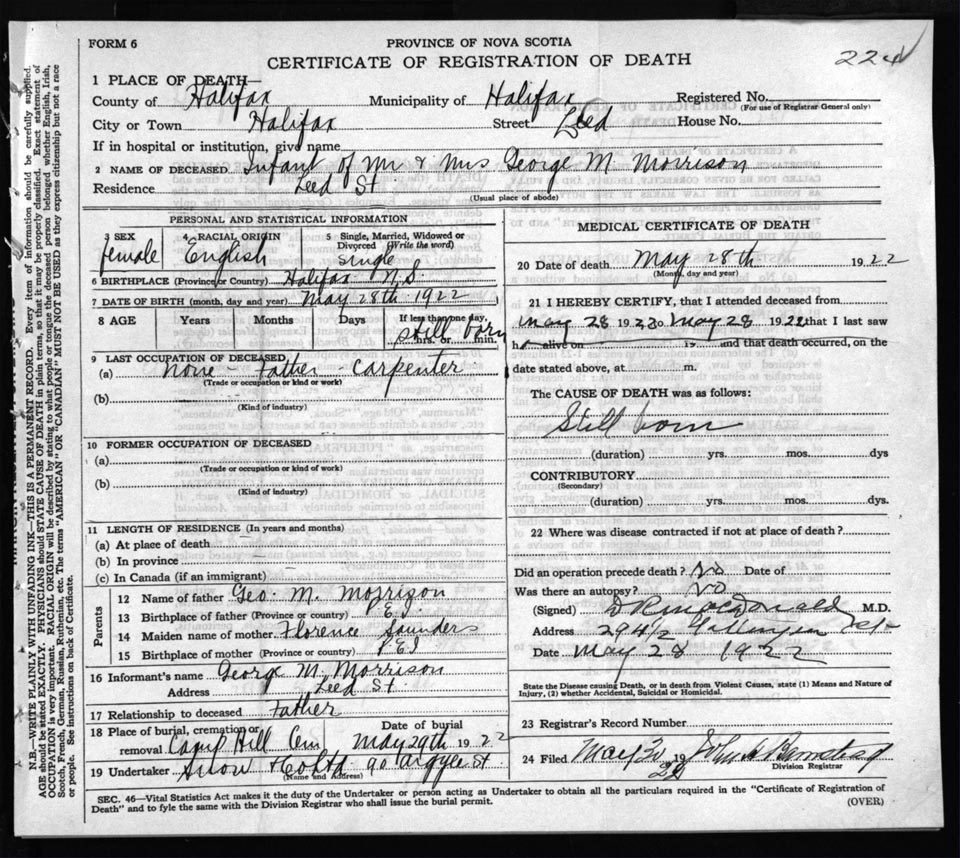 FORM 6
PROVINCE OF NOVA SCOTIA
CERTIFICATE OF REGISTRATION OF DEATH
224
1 PLACE OF DEATH—
County of Halifax Municipality of Halifax Registered No.
(For use of Registrar General only)
City or Town Halifax Street Leed House No.
If in hospital or institution, give name
2 NAME OF DECEASED Infant of Mr & Mrs George M. Morrison
Residence Leed St
(Usual place of abode)
PERSONAL AND STATISTICAL INFORMATION
3 SEX female
4 RACIAL ORIGIN English
5 Single, Married, Widowed or Divorced (Write the word) Single
6 BIRTHPLACE (Province or Country) Halifax N.S.
7 DATE OF BIRTH (month, day and year) May 28th 1922
8 AGE Years Months Days If less than one day, hrs. or min. still born
9 LAST OCCUPATION OF DECEASED
(a) none - Father - Carpenter
(Trade or occupation or kind or work)
(b)
(Kind of industry)
10 FORMER OCCUPATION OF DECEASED
(a)
(Trade or occupation or kind of work)
(b)
(Kind of industry)
11 LENGTH OF RESIDENCE (In years and months)
(a) At place of death
(b) In province
(c) In Canada (if an immigrant)
Parents
12 Name of father Geo. M. Morrison
13 Birthplace of father (Province or country)
14 Maiden name of mother Florence Saunders
15 Birthplace of mother (Province or country) P E I
16 Informant's name George M. Morrison
Address Leed St.
17 Relationship to deceased Father
18 Place of burial, cremation or removal Camp Hill Cem
Date of burial May 29th 1922
19 Undertaker Snow & Co Ltd 90 Argyle St
(Name and Address)
MEDICAL CERTIFICATE OF DEATH
20 Date of death May 28th 1922
(Month, day and year)
21 I HEREBY CERTIFY, that I attended deceased from
May 28 1922 to May 28 1922 that I last saw
h alive on 19 and that death occurred, on the
date stated above, at m.
The CAUSE OF DEATH was as follows:
Still born
(duration) yrs. mos. dys
CONTRIBUTORY
(Secondary)
(duration) yrs. mos. dys.
22 Where was disease contracted if not at place of death?
Did an operation precede death? No Date of
Was there an autopsy? No
(Signed) MacDonald M.D.
Address 294½ St
Date May 28 1922
State the Disease causing Death, or in death from Violent Causes, state (1) Means and Nature of
Injury, (2) whether Accidental, Suicidal or Homicidal.
23 Registrar's Record Number
24 Filed May 30 1922 John
Division Registrar
SEC. 46—Vital Statistics Act makes it the duty of the Undertaker or person acting as Undertaker to obtain all the particulars required in the "Certificate of Registration of
Death" and to fyle the same with the Division Registrar who shall issue the burial permit.
(OVER)
N.B.—WRITE PLAINLY WITH UNFADING INK—THIS IS A PERMANENT RECORD. Every item of information should be carefully supplied.
AGE should be stated EXACTLY. PHYSICIANS should STATE CAUSE OF DEATH in plain terms, so that it may be properly classified. Exact statement of
OCCUPATION is very important. RACIAL ORIGIN will be described by stating to what people or tongue the deceased person belonged whether English, Irish,
Scotch, French, German, Russian, Ruthenian, etc. The terms "AMERICAN" OR "CANADIAN" MUST NOT BE USED as they express citizenship but not a race
or people. See instructions on back of Certificate.